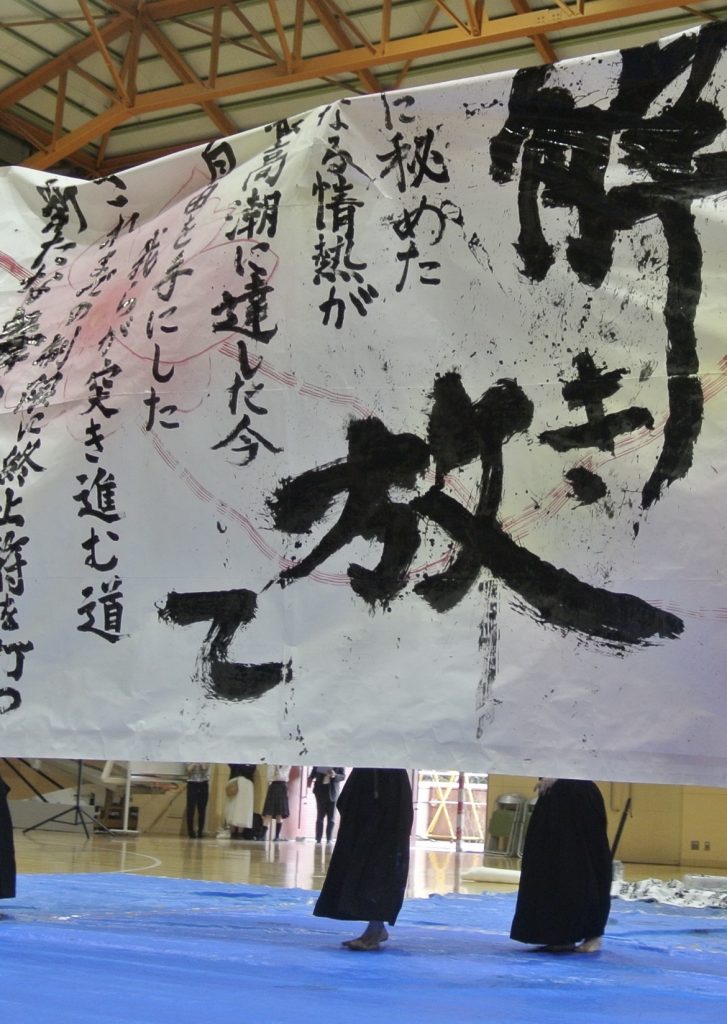 解き
放て
に秘めた
なる情熱が
最高潮に達した今
自由を手にした
我らが突き進む道
これまでの
に終止符を打つ
新たな